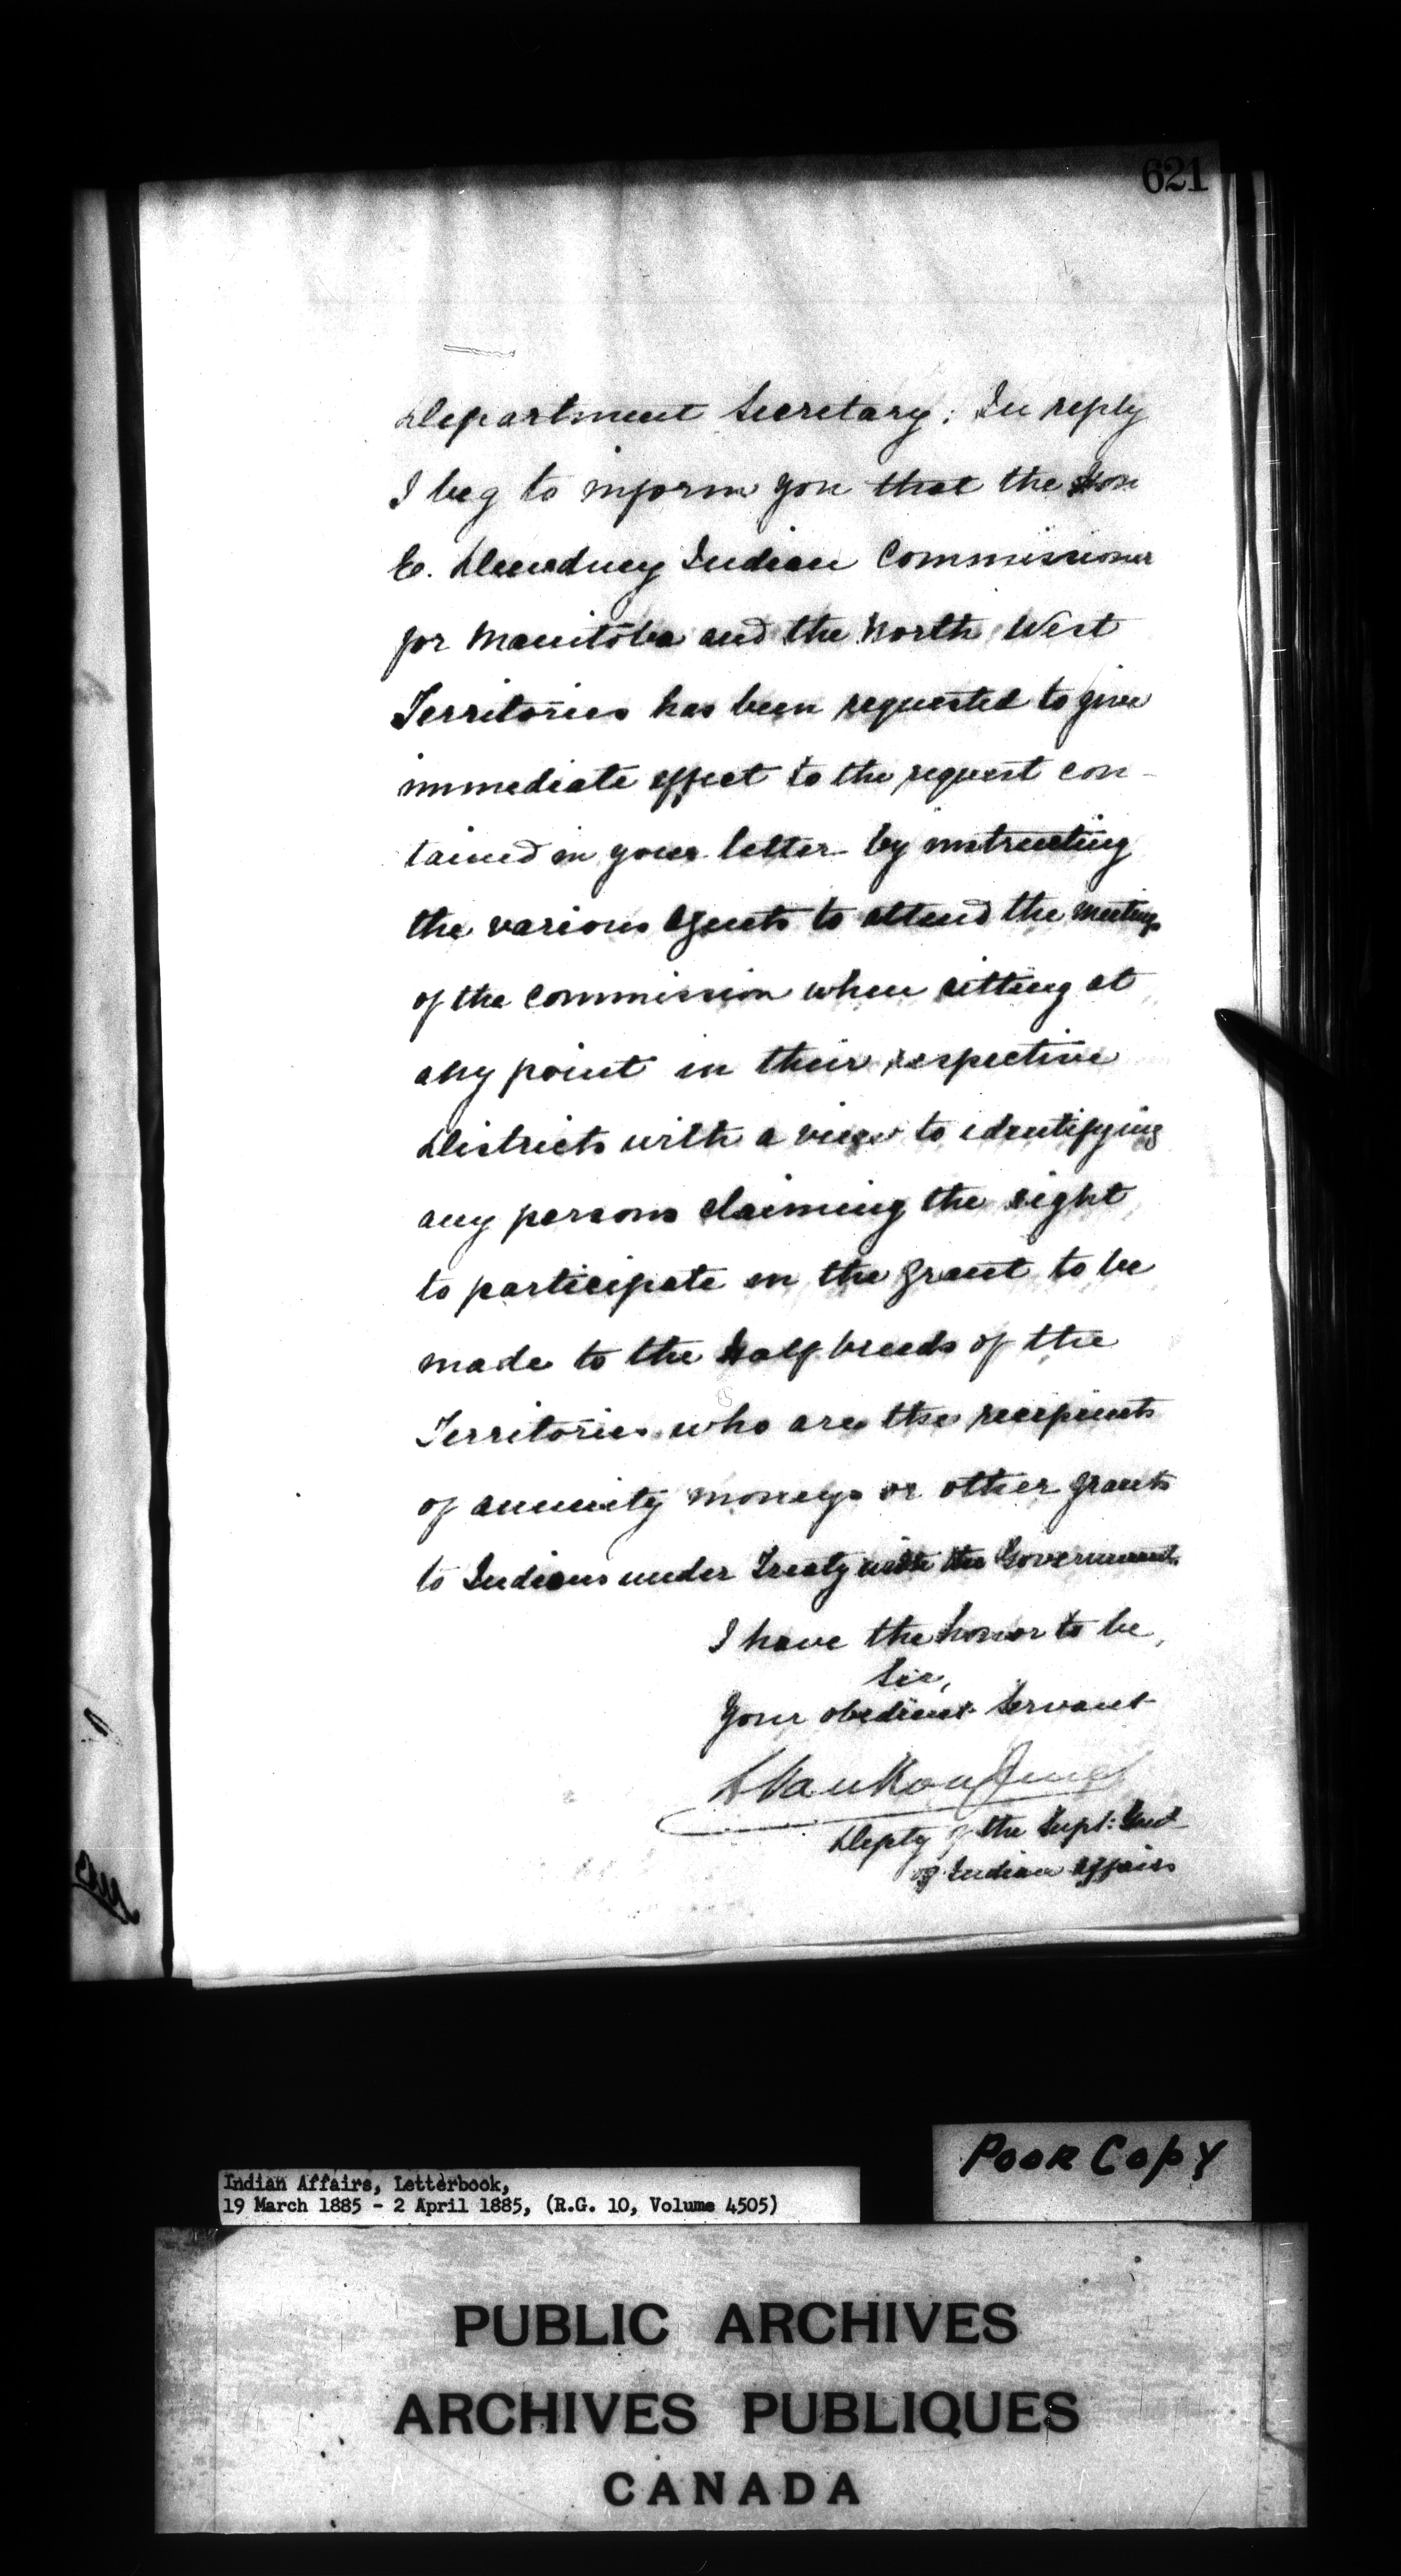 621
Department Secretary; In reply
I beg to inform you that the Hon
E. Dewdney Indian Commissioner
for Manitoba and the North West
Territories has been requested to give
immediate effect to the request con-
tained in your letter by instructing
the various Agents to attend the meetings
of the Commission when sitting at
any point in their respective
Districts with a view to identifying
any persons claiming the right
to participate in the grant to be
made to the Half breeds of the
Territories who are the recipients
of annuity moneys or other grants
to Indians under Treaty with the Government.
I have the honor to be,
Sir,
Your obedient Servant
L VanKoughnet
Depty of the Supt: Genl
of Indian Affairs
POOR COPY
Indian Affairs, Letterbook,
19 March 1885 - 2 April 1885, (R.G. 10, Volume 4505)
PUBLIC ARCHIVES
ARCHIVES PUBLIQUES
CANADA